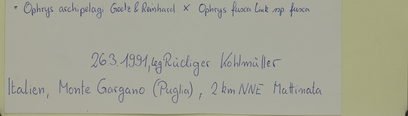 • Ophrys archipelagi Goelz & Reinhard × Ophrys fusca Link ssp fusca
26.3.1991, leg Rüdiger Kohlmüller
Italien, Monte Gargano (Puglia), 2 km NNE Mattinata